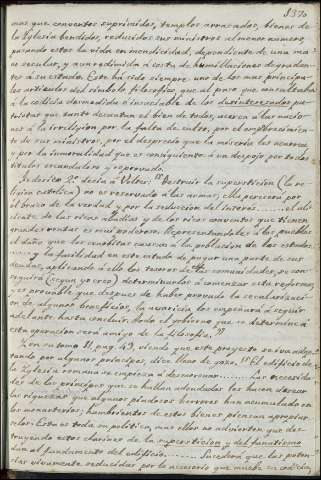 mas que conventos suprimidos, templos arrasados, bienes de
la Yglesia bendidos, reducidos sus ministros al menor numero,
pasando estos la vida en mendicidad, dependiente de una ma-
no secular, y aun redimida á costa de humillaciones degradan-
tes á su estado. Este há sido siempre uno de los mas principa-
les articulos del simbolo filosofico, que al paso que consultaba
á la codicia desmedida é insaciable de los desinteresados pa-
triotas que tanto decantan el bien de todos, acerca á las nacio-
nes á la irreligion por la falta de culto, por el
de sus ministros, por el desprecio que la miseria les acarrea
y por la inmoralidad que es consiguiente á un despojo por todos
titulos escandaloso y reprovado.
Federico 2º decia á Volter: "Destruir la supersticion (la re-
ligion catolica) no es reservado á las armas; ella perecerá por
el brazo de la verdad y por la seduccion del interes
de las ricas abadias y de los ricos conventos que tienen
grandes rentas es muy poderoso. Representandoles á los pueblos
el daño que los cenobitas causan á la poblacion de los estados
y la facilidad en este estado de pagar una parte de sus
deudas, aplicando á ello los tesoros de las comunidades, se con-
seguirá (segun yo creo) determinarlos á comenzar esta reforma,
y es probable que despues de haber provado la secularizaci-
on de algunos beneficios, la avaricia los empeñará á seguir
adelante hasta concluir. Todo el gobierno que se determine á
esta operacion será amigo de la Filosofia."
Y en su tomo 11, pag. 43, viendo que este proyecto se iva adop-
tando, por algunos principes, dice lleno de gozo: "El edificio de
la Yglesia romana se empieza á desmoronar La necesida-
des de los principes que se hallan adeudados les hacen desear
las riquezas que algunos piadosos han acumulado en
los monasterios; hambrientos de estos bienes piensan apropiar-
selos. Esta es toda su politica, mas ellos no advierten que des-
truyendo estos clarines de la supersticion y del fanatismo
al fundamento del edificio. Sucederá que las poten-
cias vivamente seducidas por lo accesorio que mueve su codicia,